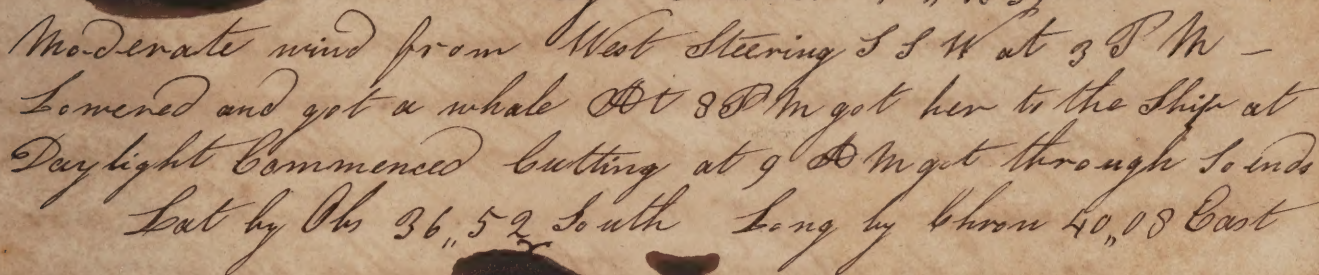 Moderate wind from West Steering S S W at 3 P M –
Lowered and got a whale At 8 P M got her to the Ship at
Daylight Commenced Cutting at 9 A M got through So ends
Lat by Obs 36,,52 South Long by Chron 40,,08 East